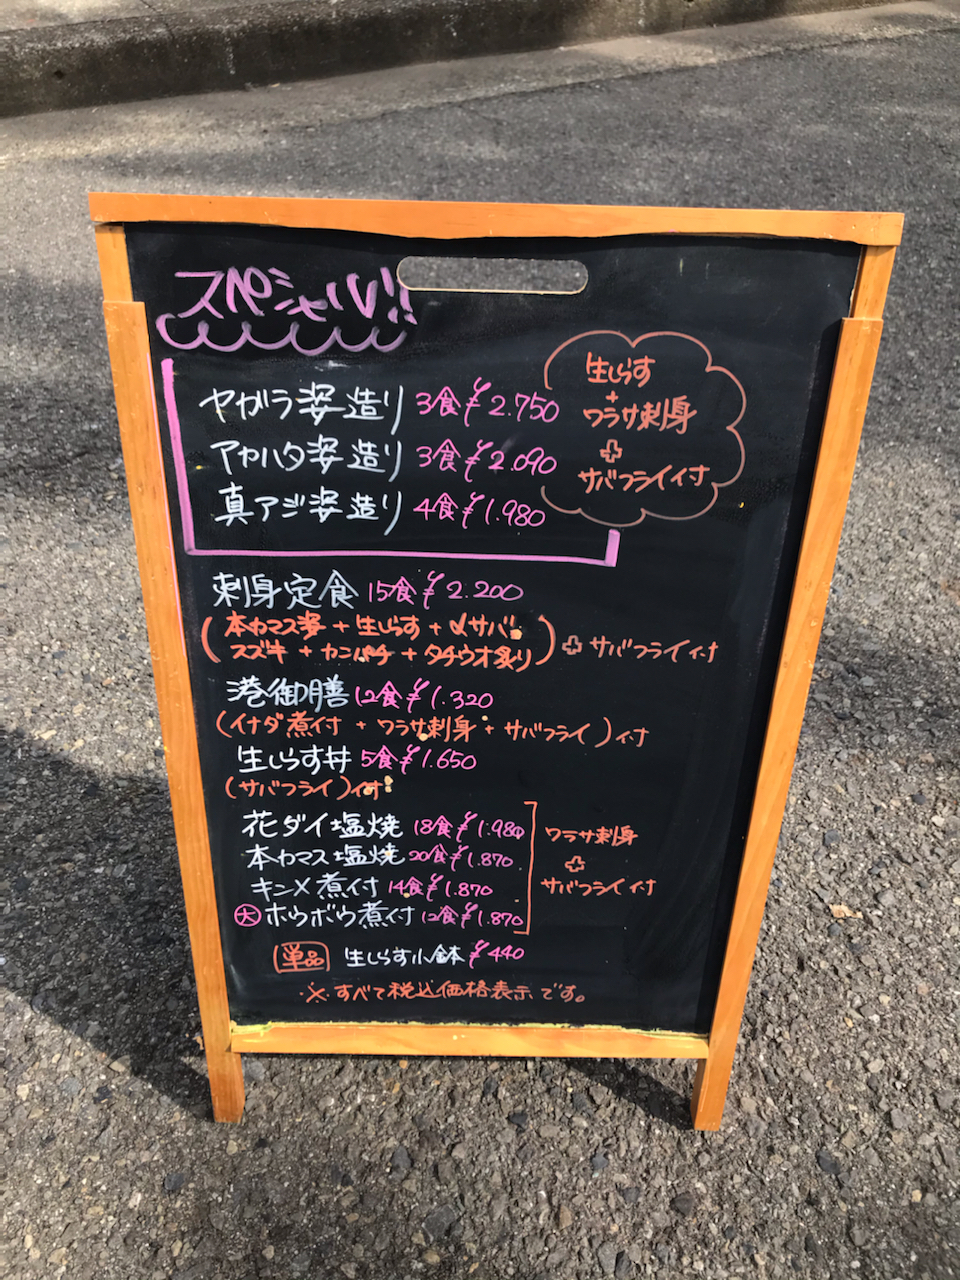 スペシャル!!
ヤガラ姿造り 3食 ¥2.750
アカハタ姿造り 3食 ¥2.090
真アジ姿造り 4食 ¥1.980
生しらす
+
ワラサ刺身
+
サバフライ付
刺身定食 15食 ¥2.200
(本カマス姿 + 生しらす + 〆サバ
スズキ + カンパチ + タチウオ炙り) + サバフライ付
港御膳 12食 ¥1.320
(イナダ煮付 + ワラサ刺身 + サバフライ)付
生しらす丼 5食 ¥1.650
(サバフライ)付
花ダイ塩焼 18食 ¥1.980
本カマス塩焼 20食 ¥1.870
キンメ煮付 14食 ¥1.870
大 ホウボウ煮付 12食 ¥1.870
ワラサ刺身
+
サバフライ付
単品 生しらす小鉢 ¥440
※すべて税込価格表示です。